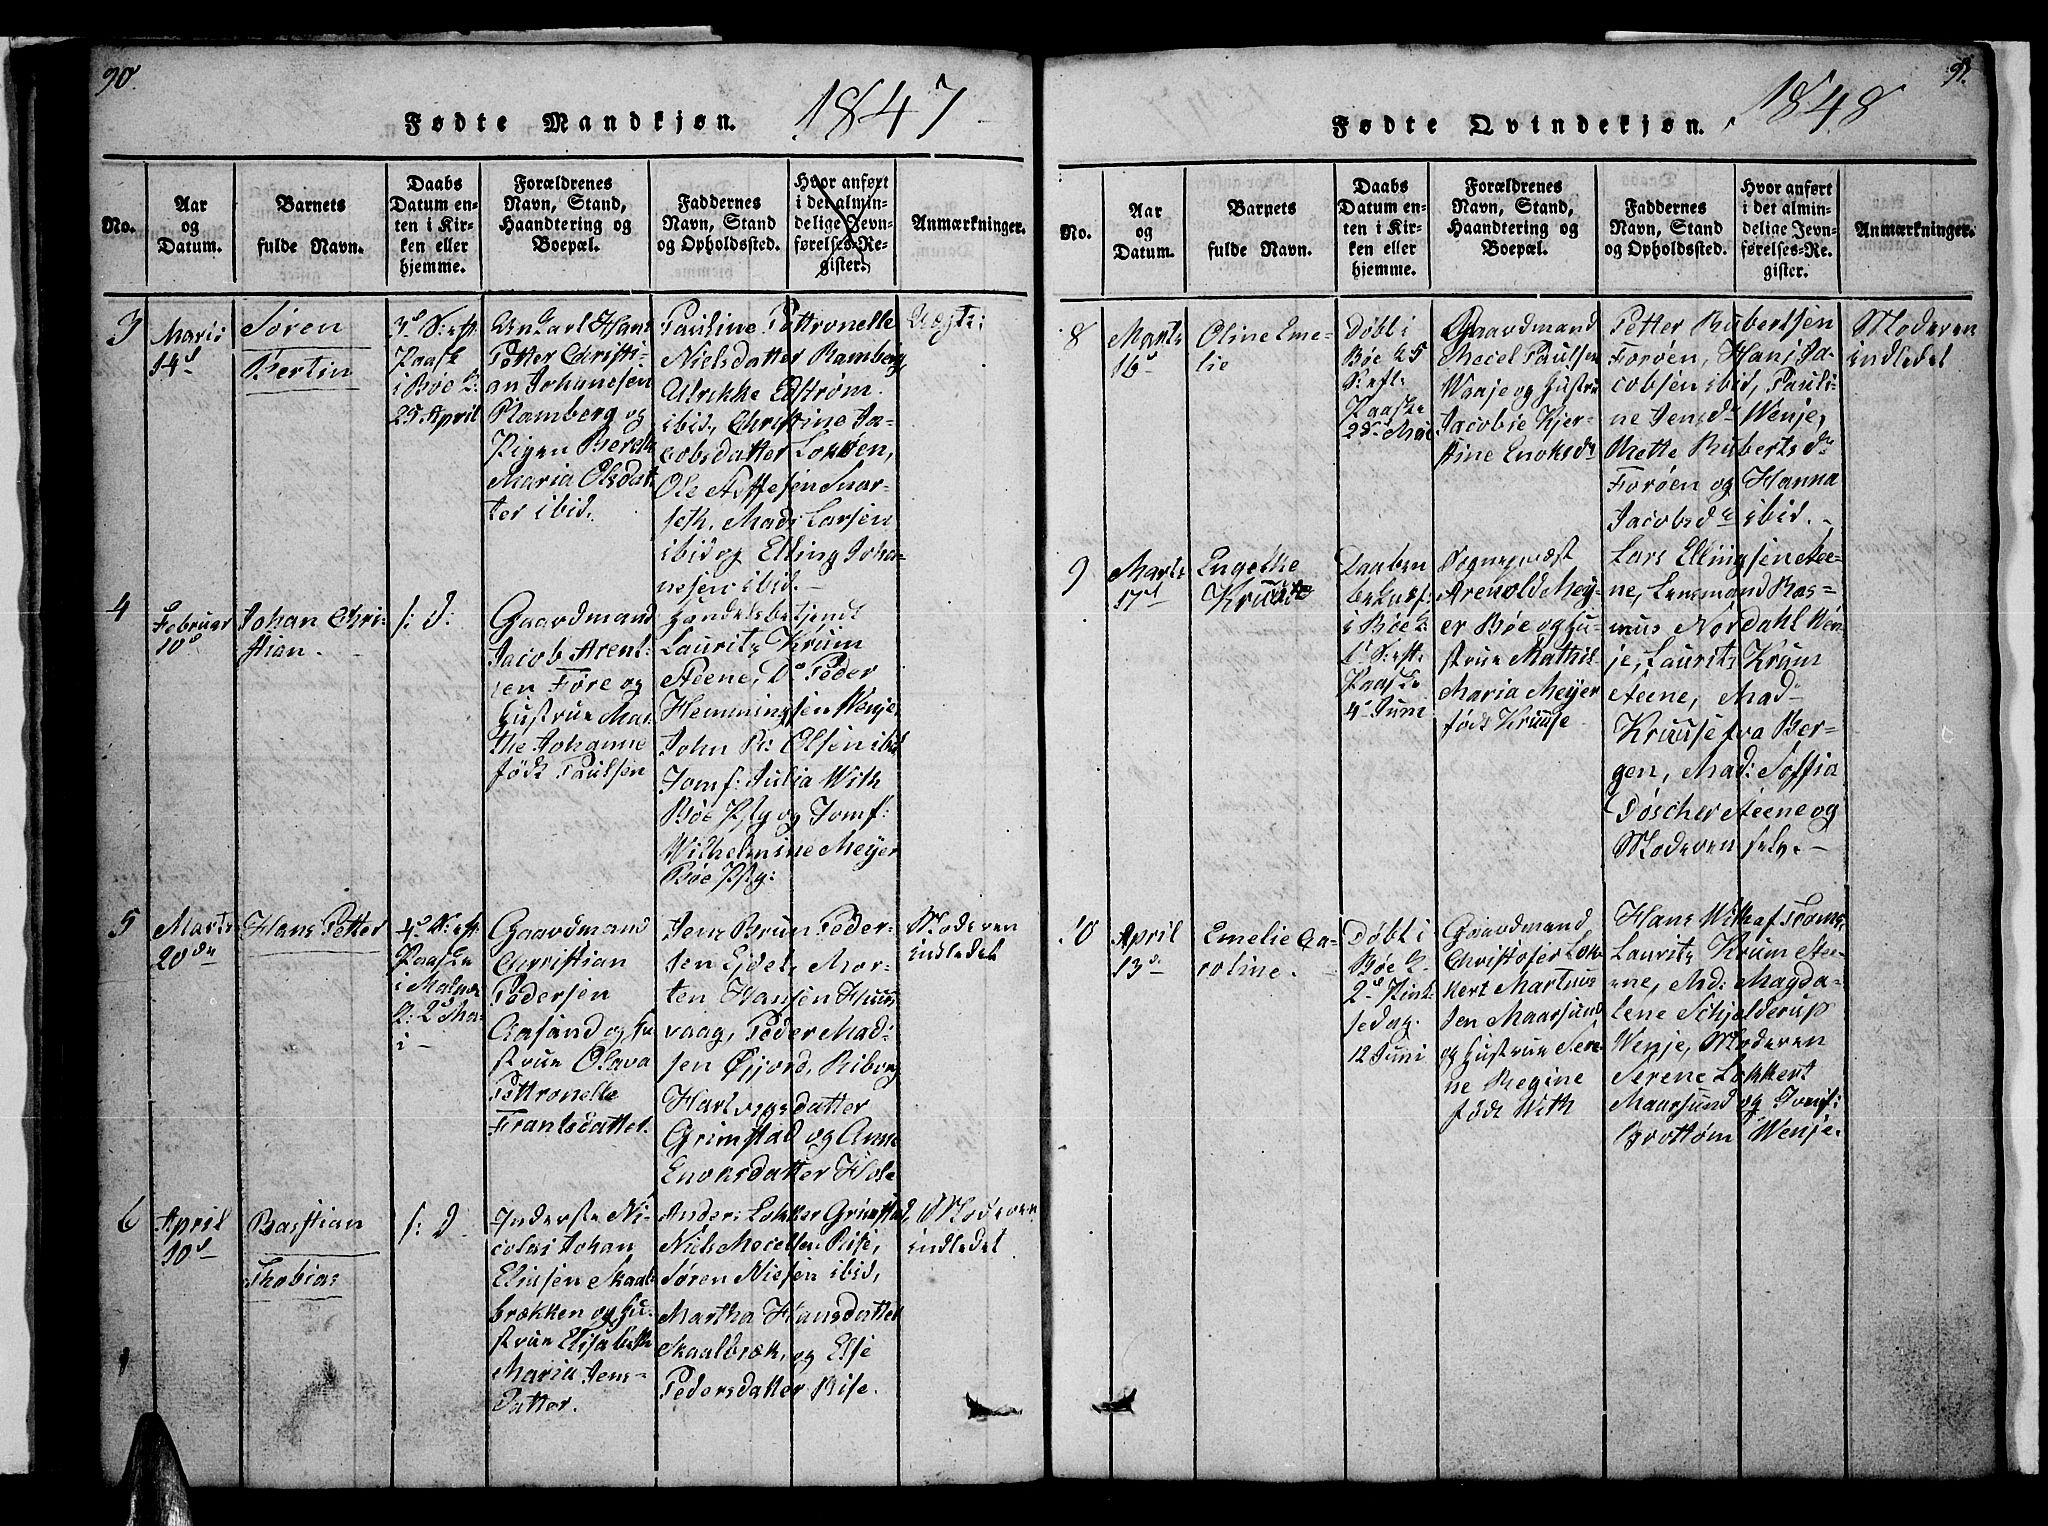 90.
Fødte Mandkjøn.
1847
No.
Aar
og
Datum.
Barnets
fulde Navn.
Daabs
Datum en-
ten i Kir-
ken eller
hjemme.
Forældrenes
Navn, Stand,
Haandtering og
Boepæl.
Faddernes
Navn, Stand
og Opholdssted.
Hvor anført
i det almin-
delige Jevn-
førelses-Re-
gister.
Anmærkninger.
3
Marts
14d
Søren
Bertin
3d S: eft
Paask
i Bøe K:
25 April
Ungkarl Hans
Petter Christi-
an Johanesen
Ramberg og
Pigen Bereth
Maria Olsdat
ter ibid.
Pauline Pettronelle
Nielsdatter Ramberg,
Ulrikke Edstrøm
ibid, Christine Ja-
cobsdatter
Ole
seth, Mads Larsen
ibid og Elling Joha-
nesen ibid.
Uægte:
4
Februar
10d
Johan Chri-
stian.
/: D:
Gaardmand
Jacob Arent-
sen Føre og
Hustrue Mar-
the Johanne
født Paulsen
Handelsbetjent
Lauritz Krum
Steene, Do Peder
Hemmingsen Wenje,
John P: Olsen ibid
Jomf: Julia With
Bøe Pstg og Jomf:
Wilhelmine Meyer
Bøe Pstg:
5
Marts
20de
Hans Petter
4d S: eft
Paaske
i Malnæs
K: 2d Ma-
i
Gaardmand
Christian
Pedersen
Aasand og Hu
strue Olava
Pettronelle
Frantsdatter.
Jens Brun Peder-
sen Eidet, Mor-
ten Hansen Huus
vaag, Peder Mad-
sen Øijord, Riborg
Hartvigsdatter
Grimstad og Anne
Enoksdatter Hole
Moderen
indledet
6
April
10d
Bastian
Thobias
/: D
Inderste Ni-
colai Johan
Eliasen Skaal-
brækken og Hu-
strue Elisabeth
Maria Jens-
datter.
Anders Lokker Grimstad,
Niels Mecelsen Rise,
Søren Nielsen ibid,
Martha Hansdatter
Skaalbræk, og Else
Pedersdatter Rise.
Moderen
indledet
91.
Fødte Qvindekjøn.
1848
No.
Aar
og
Datum.
Barnets
fulde Navn.
Daabs
Datum en-
ten i Kir-
ken eller
hjemme.
Forældrenes
Navn, Stand,
Haandtering og
Boepæl.
Faddernes
Navn, Stand
og Opholdssted.
Hvor anført
i det almin-
delige Jevn-
førelses-Re-
gister.
Anmærkninger.
8
Marts
16d
Oline Eme-
lie
Døbt i
Bøe K 5
S: eft:
Paaske
28de Mai
Gaardmand
Mecel Paulsen
Waaje og Hustrue
Jacobie Kjer-
stine Enoksdr
Petter Rubertsen
Forøen, Hans Ja-
cobsen ibid, Pauli-
ne Jensdr Wenje,
Mette Rubertsdr
Forøen og Hanna
Jacobsdr ibid.
Moderen
indledet
9
Marts
17d
Engelke
Kruuse
Daaben
bekræf:
i Bøe K:
6d S: eft:
Paaske
4d Juni
Sogneprest
Arenold Mey-
er Bøe og Hu-
strue Mathil-
Maria Meyer
født Kruuse
Lars Ellingsen Stee-
ne, Lensmand Ras-
mus Nordahl Wen-
je, Lauritz Krum
Steene, Mad-
Kruuse fra Ber-
gen, Mad: Soffia
Døscher Steene og
Moderen selv.
10
April
13d
Emelie Ca-
roline.
Døbt i
Bøe K.
2d Pint-
sedag
12 Juni
Gaardmand
Christofer Lok-
kert Martinus
sen Maarsund
og Hustrue Sere-
ne Regine
født With
Hans With af Troms,
Lauritz Krum Stee-
ne, Md: Magda-
lene Schjelderup
Wenje, Moderen
Serene Lokkert
Maarsund og Jomf:
Brottøm Wenje.